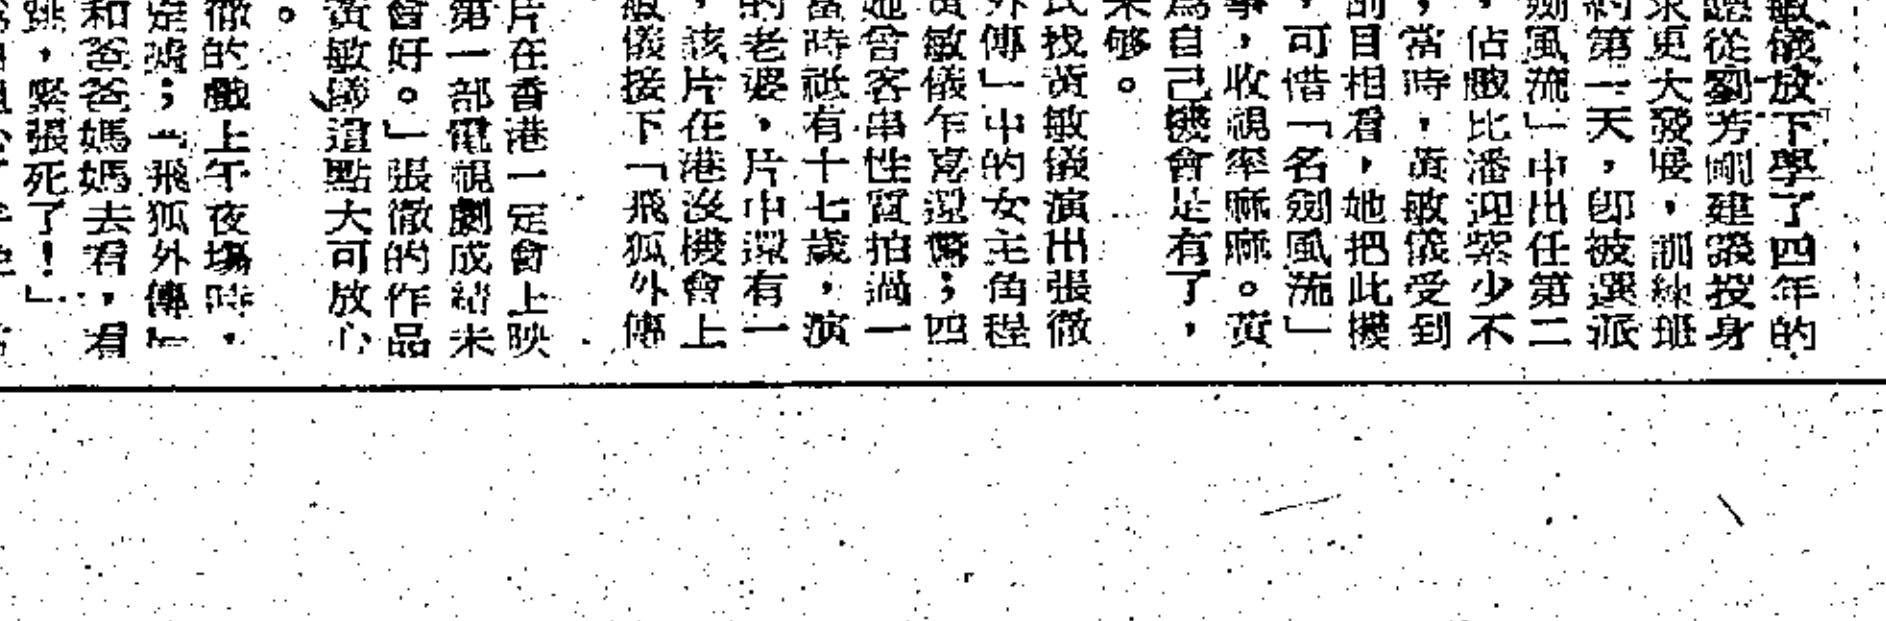 敏儀放下學了四年的
聽從劉芳剛建議投身
求更大發展，訓練班
約第一天，即被選派
劍風流」中出任第二
，佔戲比潘迎紫少不
，當時，黃敏儀受到
目相看，她把此機
，可惜「名劍風流」
事，收視率麻麻。黃
爲自己機會是有了，
未够。
找黃敏儀演出張徹
外傳」中的女主角程
黃敏儀乍驚還懼；四
她曾客串性質拍過一
當時祗有十七歲，演
的老婆，片中還有一
，該片在港沒機會上
敏儀接下「飛狐外傳
片在香港一定會上映
第一部電視劇成績未
會好。」張徹的作品
黃敏儀這點大可放心
。
徹的戲上午夜場時，
是號；「飛狐外傳」
和爸爸媽媽去看，看
跳，緊張死了！」